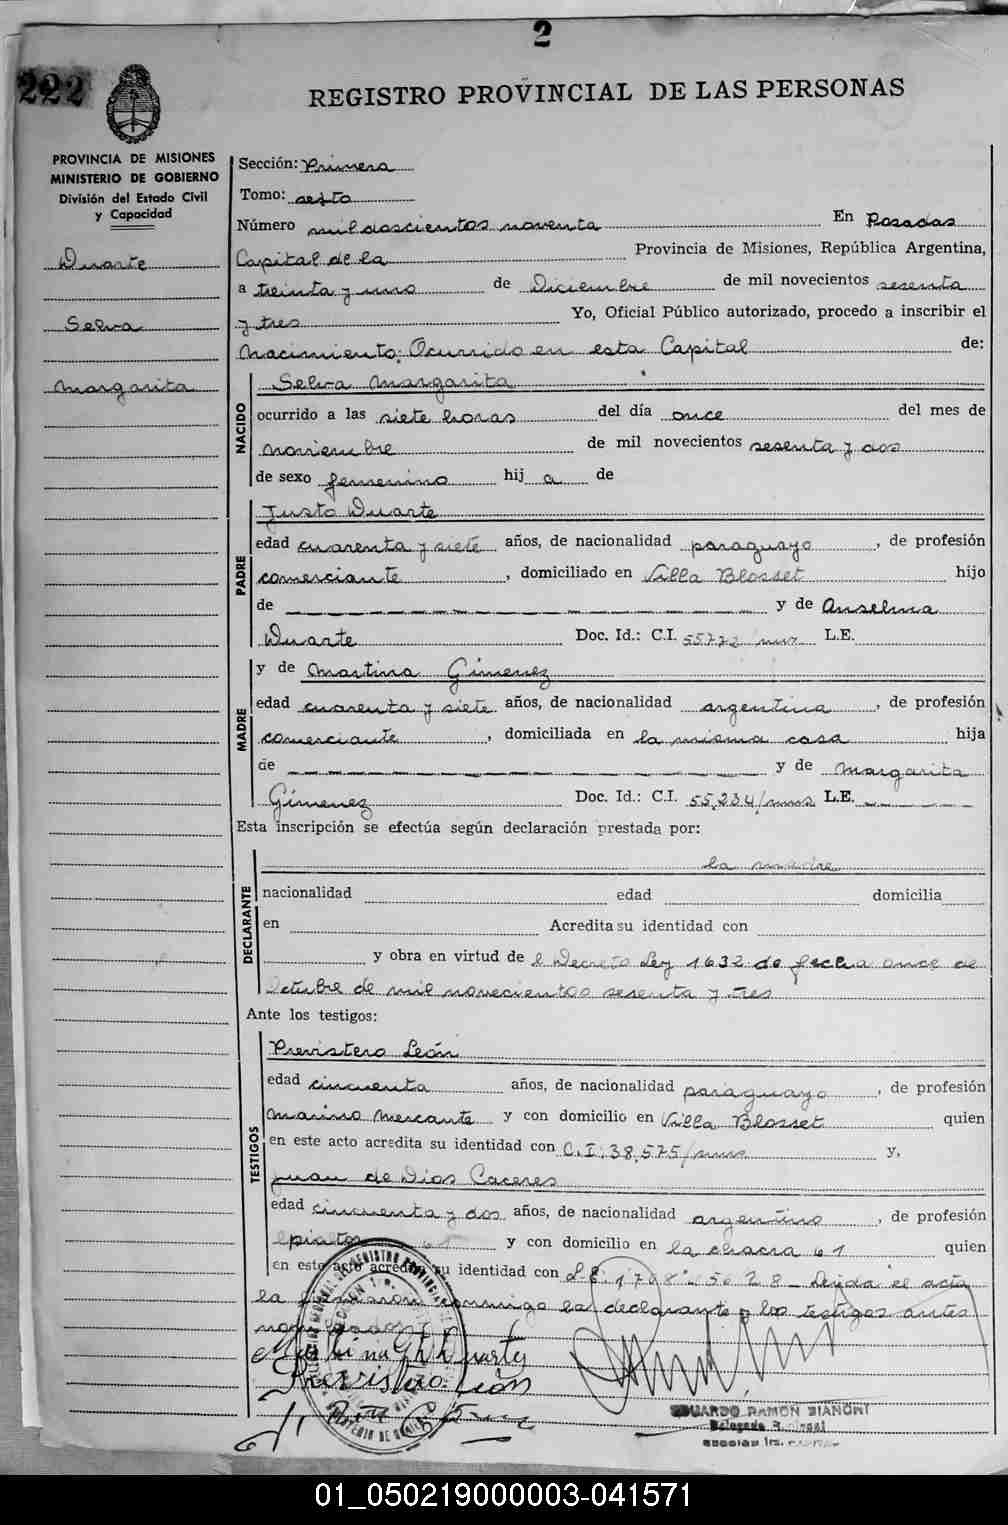 2
222
REGISTRO PROVINCIAL DE LAS PERSONAS
PROVINCIA DE MISIONES
MINISTERIO DE GOBIERNO
División del Estado Civil
y Capacidad
Duarte
Selva
Margarita
Sección: Primera
Tomo: sexto
Número mil doscientos noventa En Posadas
Capital de la Provincia de Misiones, República Argentina,
a treinta y uno de Diciembre de mil novecientos sesenta
y tres Yo, Oficial Público autorizado, procedo a inscribir el
Nacimiento: Ocurrido en esta Capital de:
NACIDO
Selva Margarita
ocurrido a las siete horas del día once del mes de
noviembre de mil novecientos sesenta y dos
de sexo femenino hij a de
PADRE
Justo Duarte
edad cuarenta y siete años, de nacionalidad paraguayo, de profesión
comerciante, domiciliado en Villa Blosset hijo
de y de Anselma
Duarte Doc. Id.: C.I. 55772/mnes L.E.
MADRE
y de Martina Gimenez
edad cuarenta y siete años, de nacionalidad argentina, de profesión
comerciante, domiciliada en la misma casa hija
de y de Margarita
Gimenez Doc. Id.: C.I. 55,234/mnes L.E.
Esta inscripción se efectúa según declaración prestada por:
DECLARANTE
la madre
nacionalidad edad domicilia
en Acredita su identidad con
y obra en virtud de l Decreto Ley 1632 de fecha once de
Octubre de mil novecientos sesenta y tres
Ante los testigos:
TESTIGOS
Previstero León
edad cincuenta años, de nacionalidad paraguayo, de profesión
Marino Mercante y con domicilio en Villa Blosset quien
en este acto acredita su identidad con C.I: 38,575/mnes y,
Juan de Dios Caceres
edad cincuenta y dos años, de nacionalidad argentino, de profesión
y con domicilio en la chacra 61 quien
en este acto acredita su identidad con L.E: 1708 5628 Leida el acta
la firmaron conmigo la declarante y los testigos antes
nombrados
León
EDUARDO RAMON BIANCHI
01_050219000003-041571